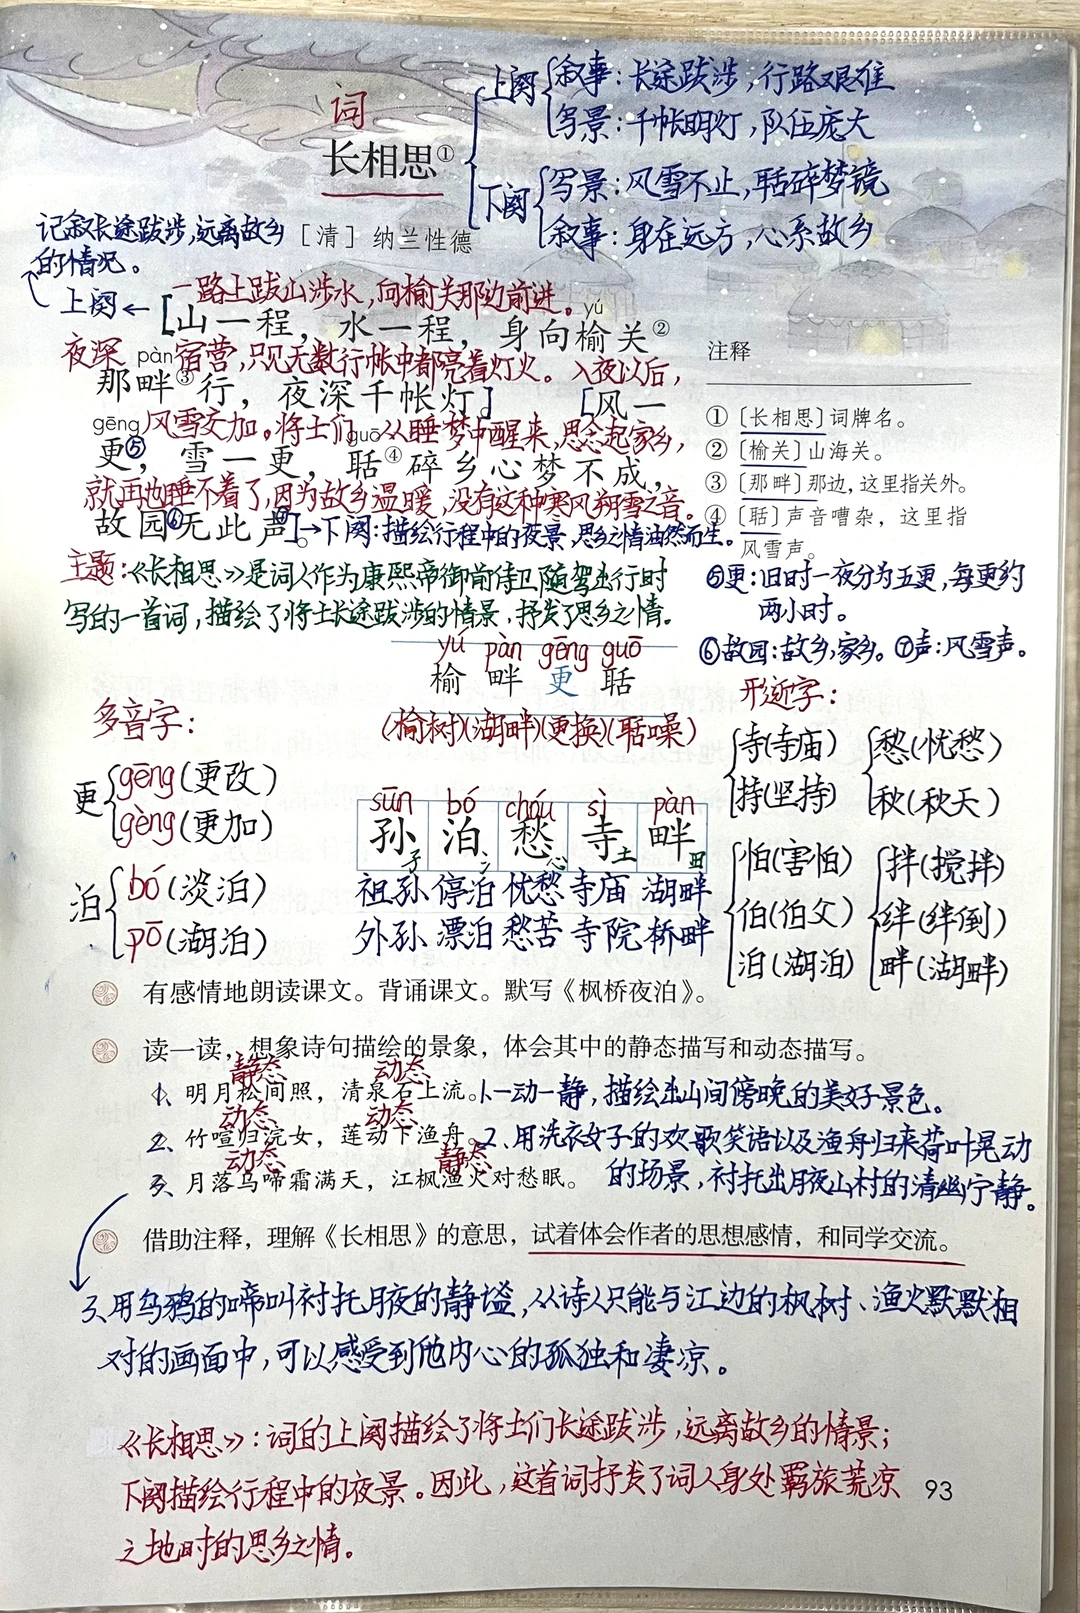 词
长相思①
上阕 叙事：长途跋涉，行路艰难
写景：千帐明灯，队伍庞大
下阕 写景：风雪不止，聒碎梦镜
叙事：身在远方，心系故乡
［清］纳兰性德
记叙长途跋涉，远离故乡
的情况。
上阕←
一路上跋山涉水，向榆关那边前进。
yú
[山一程，水一程，身向榆关②
夜深 pàn 宿营，只见无数行帐中都亮着灯火。入夜以后，
那畔③行，夜深千帐灯。] [风一
gēng 风雪交加。将士们 guō 从睡梦中醒来，思念起家乡，
更⑤，雪一更，聒④碎乡心梦不成，
就再也睡不着了，因为故乡温暖，没有这种寒风朔雪之音。
故园⑥无此声⑦。]→下阕：描绘行程中的夜景，思乡之情油然而生。
注释
①〔长相思〕词牌名。
②〔榆关〕山海关。
③〔那畔〕那边，这里指关外。
④〔聒〕声音嘈杂，这里指
风雪声。
⑤更：旧时一夜分为五更，每更约
两小时。
⑥故园：故乡，家乡。⑦声：风雪声。
主题：《长相思》是词人作为康熙帝御前侍卫随驾出行时
写的一首词，描绘了将士长途跋涉的情景，抒发了思乡之情。
yú pàn gēng guō
榆 畔 更 聒
（榆树）（湖畔）（更换）（聒噪）
多音字：
更 gēng（更改）
gèng（更加）
泊 bó（淡泊）
pō（湖泊）
sūn bó chóu sì pàn
孙 泊 愁 寺 畔
子 氵 心 土 田
祖孙 停泊 忧愁 寺庙 湖畔
外孙 漂泊 愁苦 寺院 桥畔
形近字：
寺（寺庙） 愁（忧愁）
持（坚持） 秋（秋天）
怕（害怕） 拌（搅拌）
伯（伯父） 绊（绊倒）
泊（湖泊） 畔（湖畔）
有感情地朗读课文。背诵课文。默写《枫桥夜泊》。
读一读，想象诗句描绘的景象，体会其中的静态描写和动态描写。
静态 动态
1、明月松间照，清泉石上流。1、一动一静，描绘出山间傍晚的美好景色。
动态 动态
2、竹喧归浣女，莲动下渔舟。2、用洗衣女子的欢歌笑语以及渔舟归来荷叶晃动
动态 静态
3、月落乌啼霜满天，江枫渔火对愁眠。 的场景，衬托出月夜山村的清幽宁静。
借助注释，理解《长相思》的意思，试着体会作者的思想感情，和同学交流。
3、用乌鸦的啼叫衬托月夜的静谧，从诗人只能与江边的枫树、渔火默默相
对的画面中，可以感受到他内心的孤独和凄凉。
《长相思》：词的上阕描绘了将士们长途跋涉，远离故乡的情景；
下阕描绘行程中的夜景。因此，这首词抒发了词人身处羁旅荒凉
之地时的思乡之情。
93